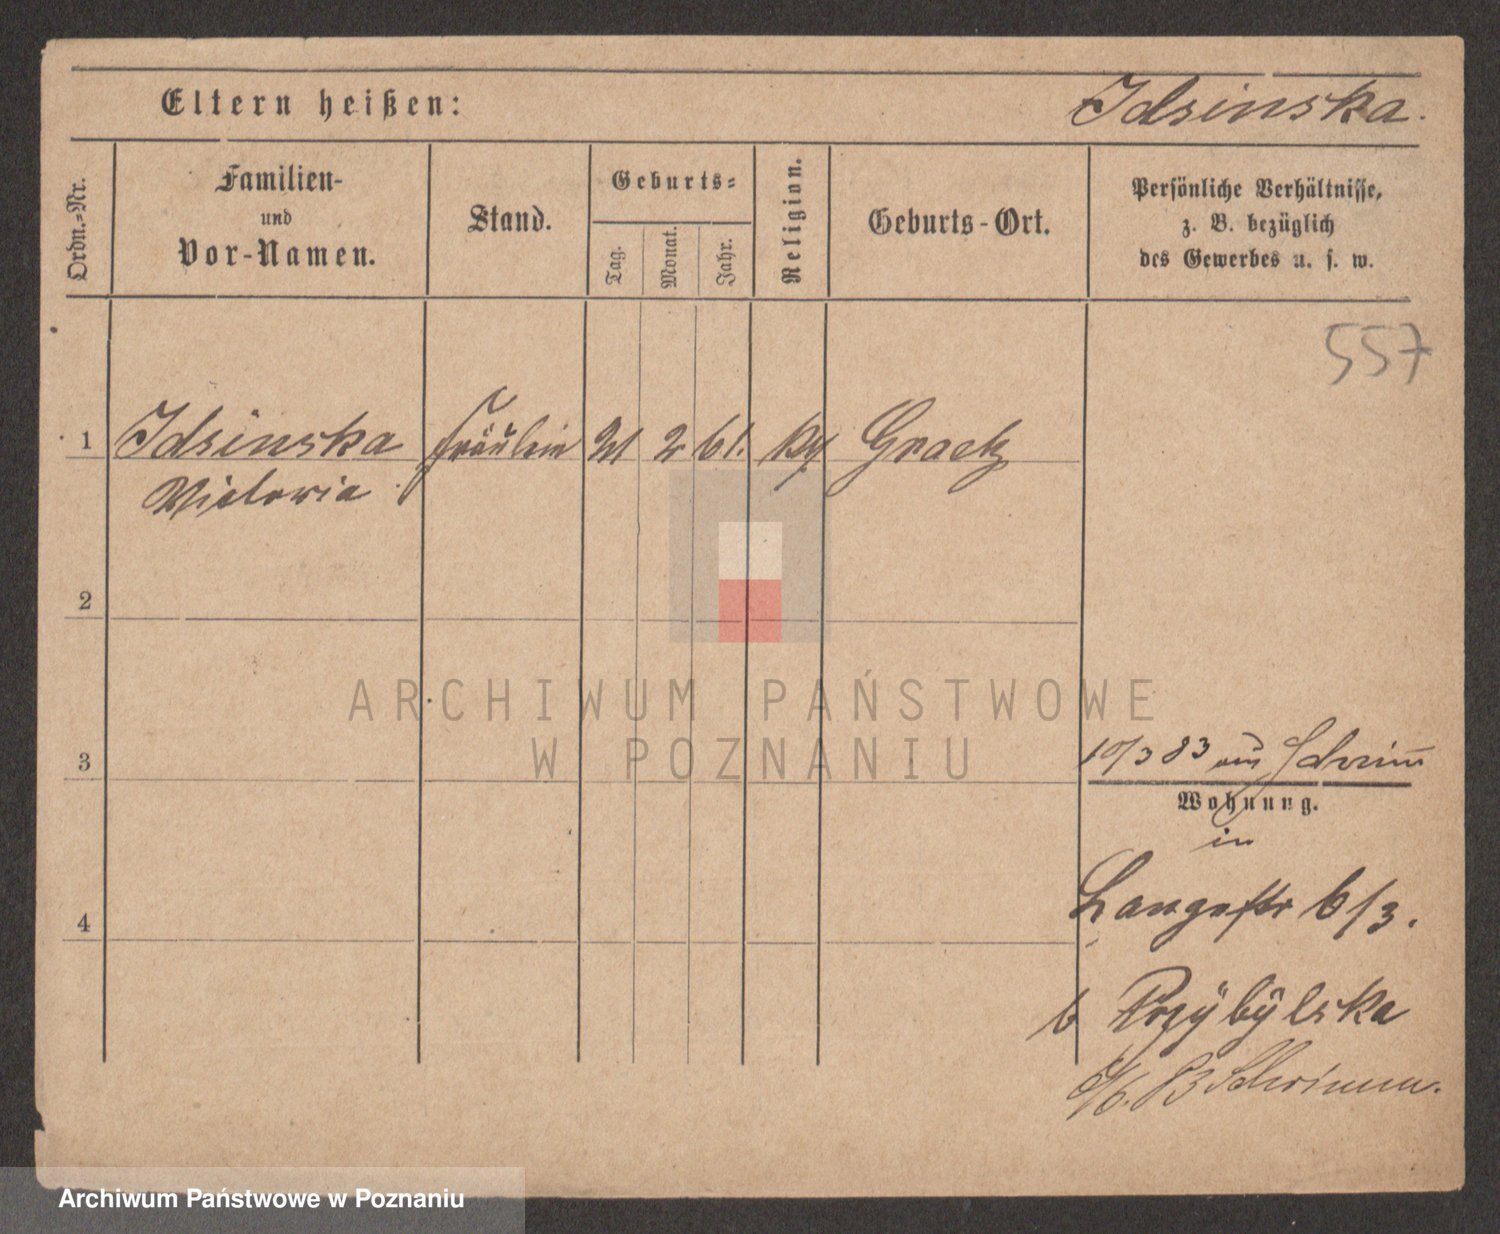 Eltern heißen: Idsinska.
Ordn.-Nr.
Familien-
und
Vor-Namen.
Stand.
Geburts-
Tag.
Monat.
Jahr.
Religion.
Geburts-Ort.
Persönliche Verhältnisse,
z. B. bezüglich
des Gewerbes u. s. w.
557
1 Idsinska Fräulein 21 2 61. Graetz
Victoria
2
3
4
10/3 83 aus Schrimm
Wohnung.
in
Langestr 6/3.
b Przÿbÿlska
/6. 83 Schrimm.
ARCHIWUM PAŃSTWOWE
W POZNANIU
Archiwum Państwowe w Poznaniu